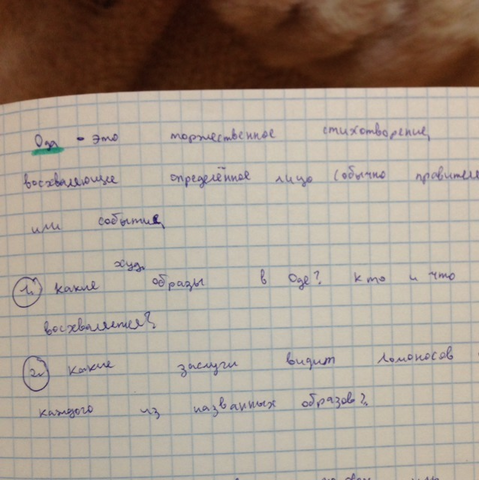 Ода - это торжественное стихотворение,
восхваляющее определённое лицо (обычно правителя
или событие
худ.
1. Какие образы в оде? Кто и что
восхваляется?
2. Какие заслуги видит Ломоносов
каждого из названных образов?